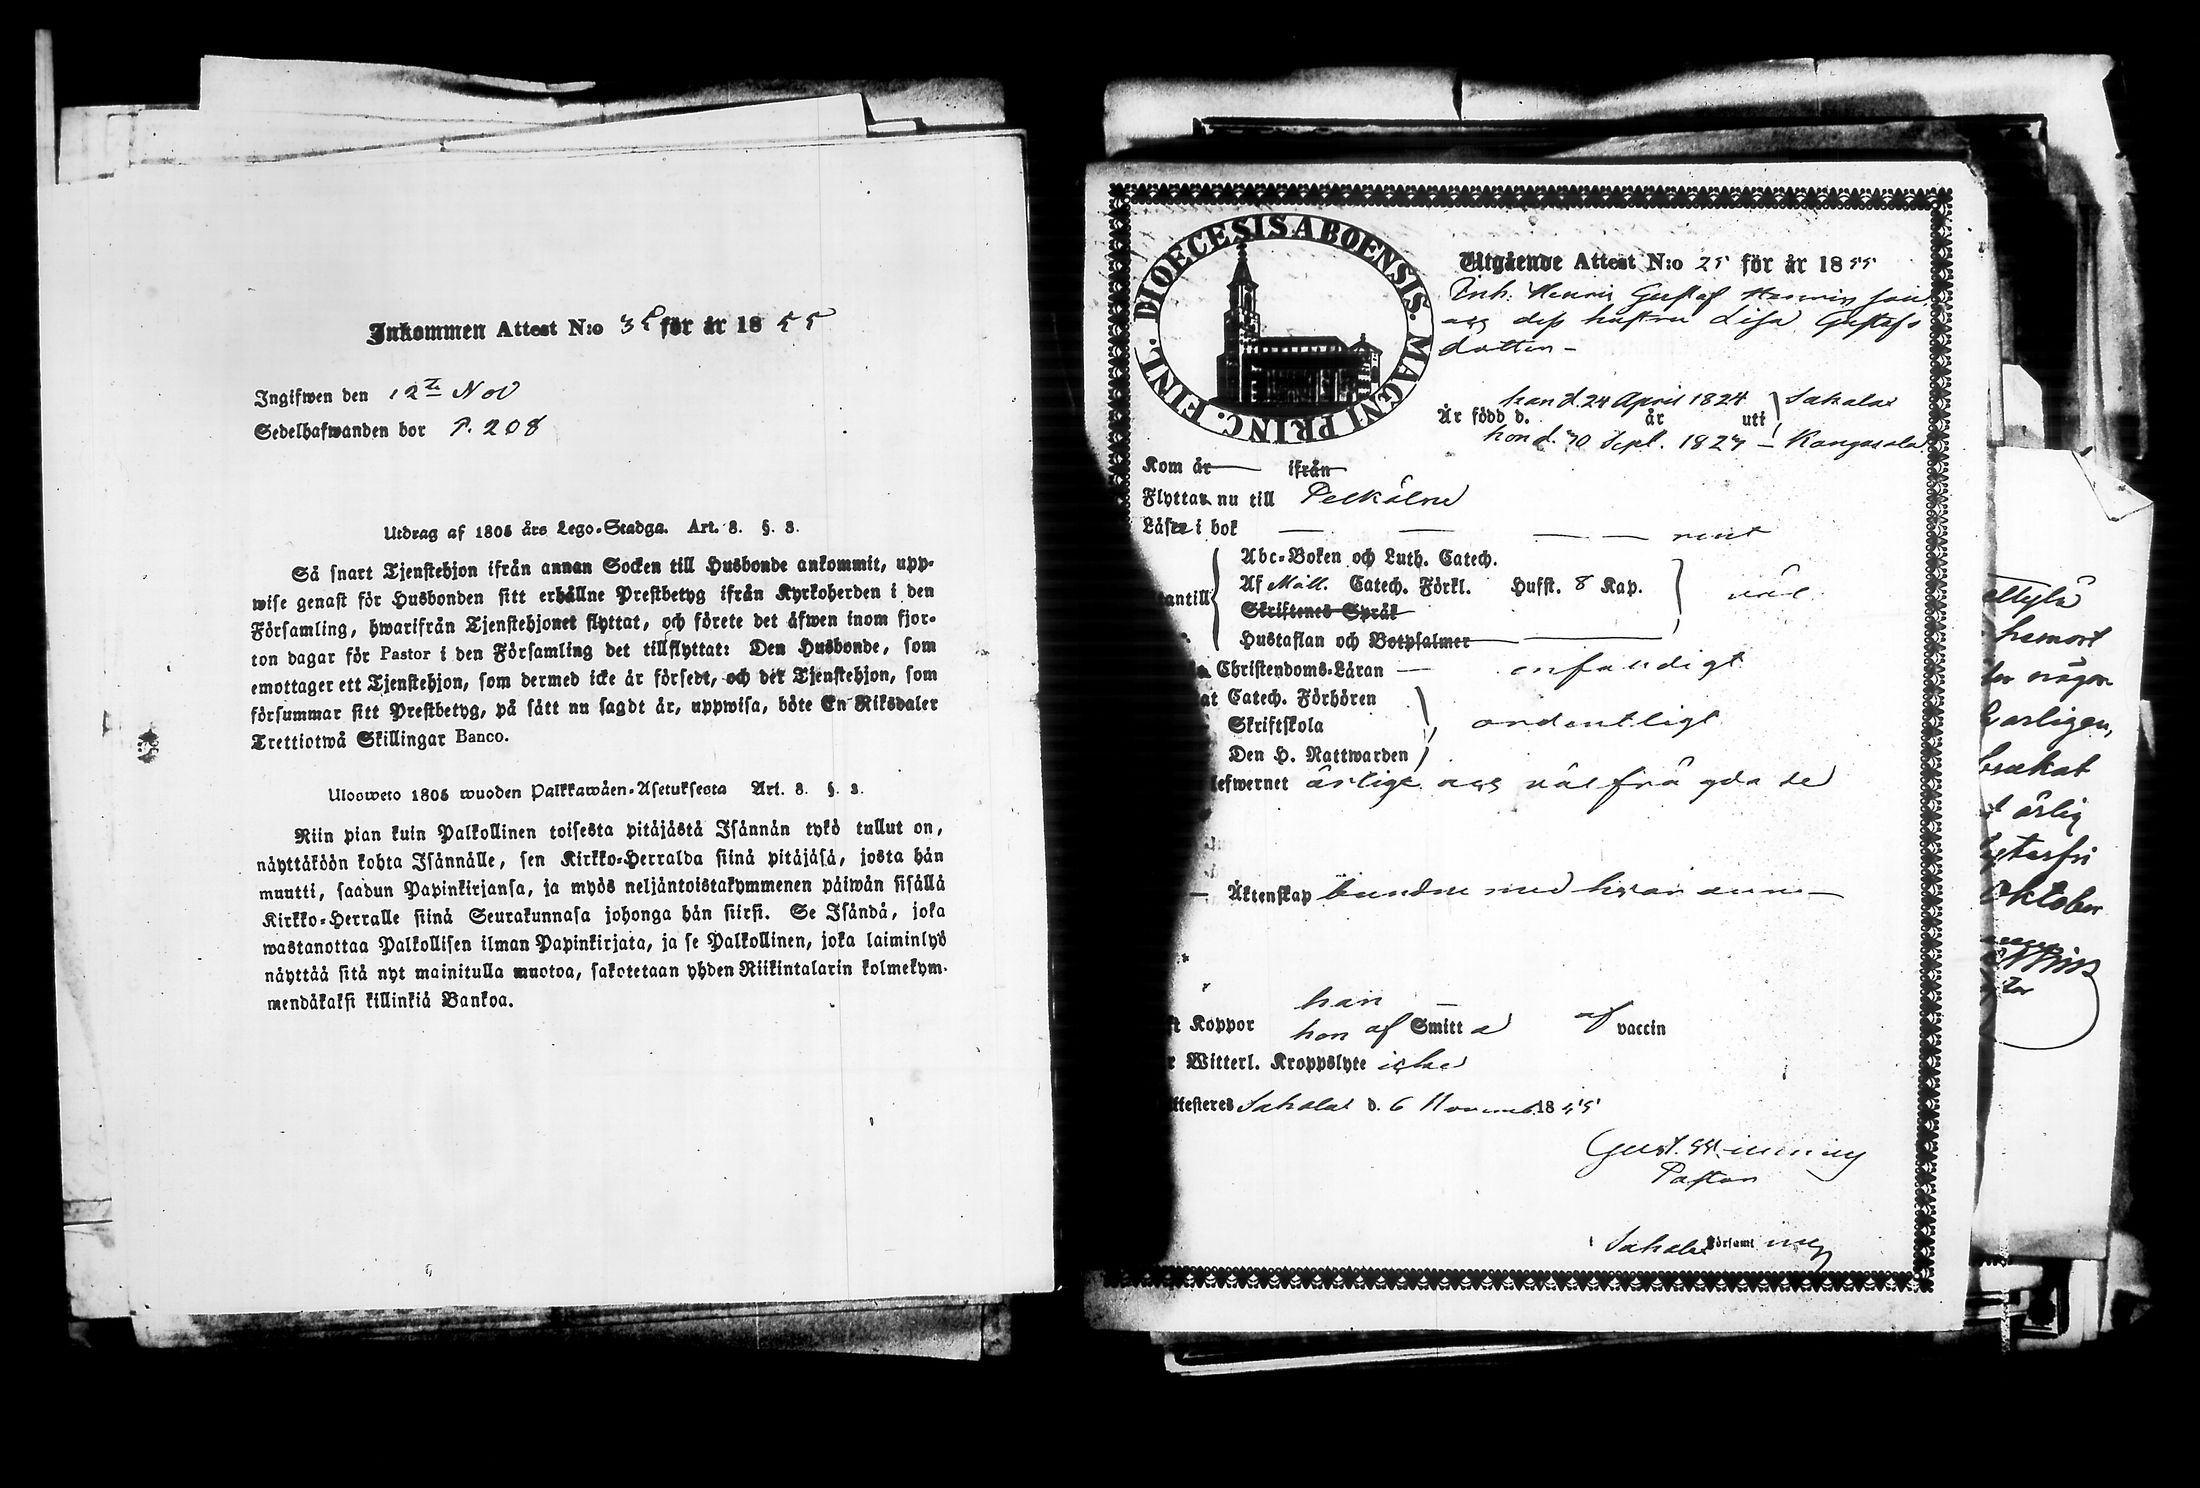 Inkommen Attest N:o 35 för år 1855
Ingifwen den 12te Nov
Sedelhafwanden bor P. 208
Utdrag af 1805 års Lego-Stadga. Art. 8. §. 3.
Så snart Tjenstehjon ifrån annan Socken till Husbonde ankommit, upp-
wise genast för Husbonden sitt erhållne Prestbetyg ifrån Kyrkoherden i den
Församling, hwarifrån Tjenstehjonet flyttat, och förete det äfwen inom fjor-
ton dagar för Pastor i den Församling det tillflyttat: Den Husbonde, som
emottager ett Tjenstehjon, som dermed icke är försedt, och det Tjenstehjon, som
försummar sitt Prestbetyg, på sätt nu sagdt är, uppwisa, böte En Riksdaler
Trettiotwå Skillingar Banco.
Ulosweto 1805 wuoden Palkkawäen-Asetuksesta Art. 8. §. 3.
Niin pian kuin Palkollinen toisesta pitäjästä Isännän tykö tullut on,
näyttäköön kohta Isännälle, sen Kirkko-Herralda siinä pitäjäsä, josta hän
muutti, saadun Papinkirjansa, ja myös neljäntoistakymmenen päiwän sisällä
Kirkko-Herralle siinä Seurakunnasa johonga hän siirsi. Se Isändä, joka
wastanottaa Palkollisen ilman Papinkirjata, ja se Palkollinen, joka laiminlyö
näyttää sitä nyt mainitulla muotoa, sakotetaan yhden Riikintalarin kolmekym-
mendäkaksi killinkiä Bankoa.
DIOECESIS ABOENSIS. MAGNI PRINC. FINL.
Utgående Attest N:o 25 för år 1855
Inh. Henric Gustaf Henricsson
och dess hustru Lisa Gustafs
dotter -
han d. 24 April 1824 Sahalax
Är född d. år uti
hon d. 30 Sept. 1827 - Kangasala
Kom år ifrån
Flyttar nu till Pelkäne
Läser i bok rent
Abc-Boken och Luth. Catech.
Af Möll. Catech. Förkl. Husst. 8 Kap.
antill wäl
Skriftenes Språk
Hustaflan och Botpsalmer
Christendoms-Läran - enfaldigt
at Catech. Förhören
Skriftskola ordentligt
Den H. Nattwarden
lefwernet ärlige och wälfrägdade
- Äktenskap bundne med hvarannan -
han
ft Koppor hon af Smitta af vaccin
r Witterl. Kroppslyte icke
Attesteres Sahalax d. 6 Novemb. 1855
Gust.
Pastor
i Sahalax Församling
hemort
någor
ärlig
Oktober